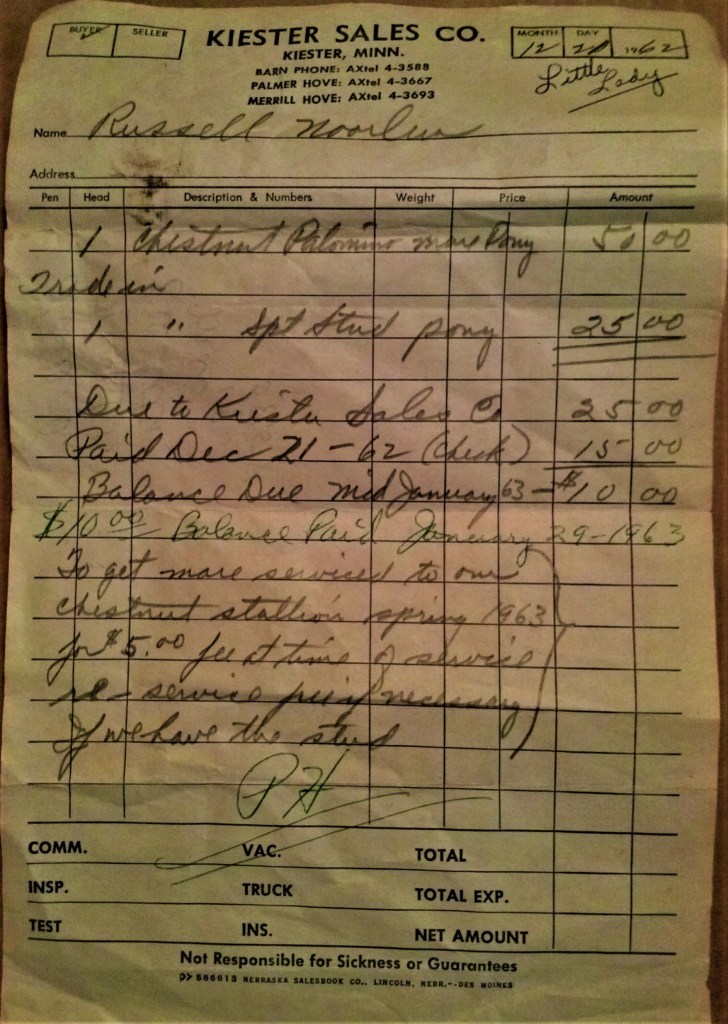 BUYER SELLER
KIESTER SALES CO.
KIESTER, MINN.
BARN PHONE: AXtel 4-3588
PALMER HOVE: AXtel 4-3667
MERRILL HOVE: AXtel 4-3693
MONTH DAY
12 1962
Little Lady
Name Russell Noorlun
Address
Pen Head Description & Numbers Weight Price Amount
1 Chestnut Palomino mare Pony 50 00
Trade in
1 " Spt Stud pony 25 00
Due to Kiester Sales Co 25 00
Paid Dec 21-62 (Check) 15 00
Balance Due mid January 63 - $10 00
$10.00 Balance Paid January 29-1963
To get mare serviced to our
chestnut stallion spring 1963
for $5.00 fee at time of service
re-service free if necessary
If we have the stud
PH
COMM. VAC. TOTAL
INSP. TRUCK TOTAL EXP.
TEST INS. NET AMOUNT
Not Responsible for Sickness or Guarantees
586613 NEBRASKA SALESBOOK CO., LINCOLN, NEBR.--DES MOINES